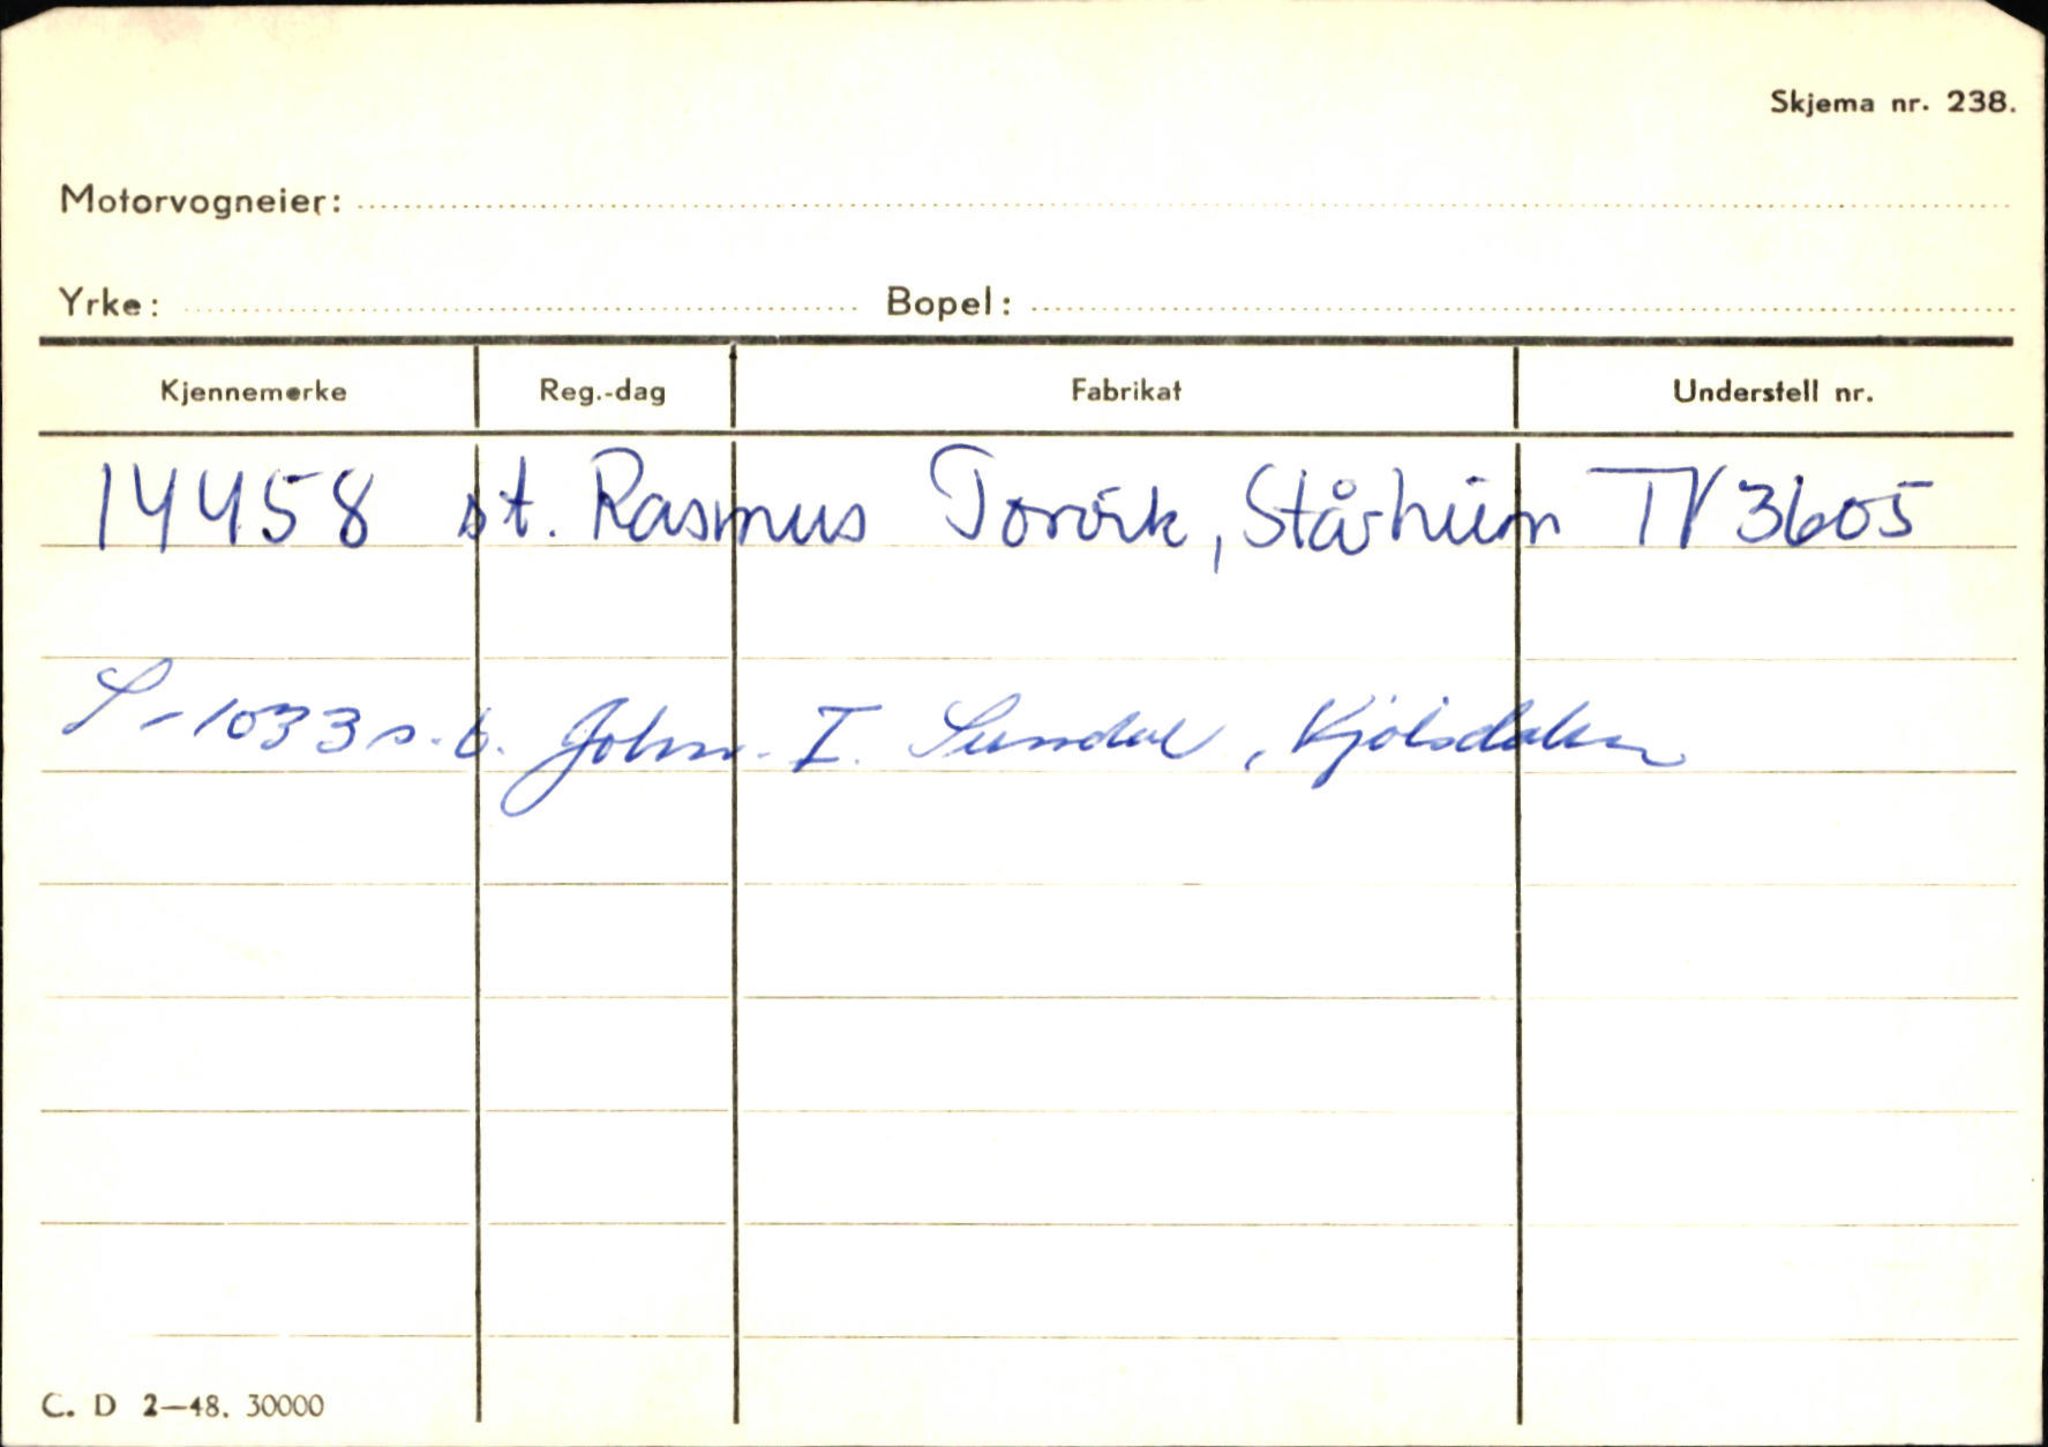 Skjema nr. 238.
Motorvogneier:
Yrke: Bopel:
Kjennemerke Reg.-dag Fabrikat Understell nr.
14458 st. Rasmus Torvik, Stårheim TV 3605
S-1033 s.b. John I. Sundal, Kjölsdalen
C. D 2-48. 30000